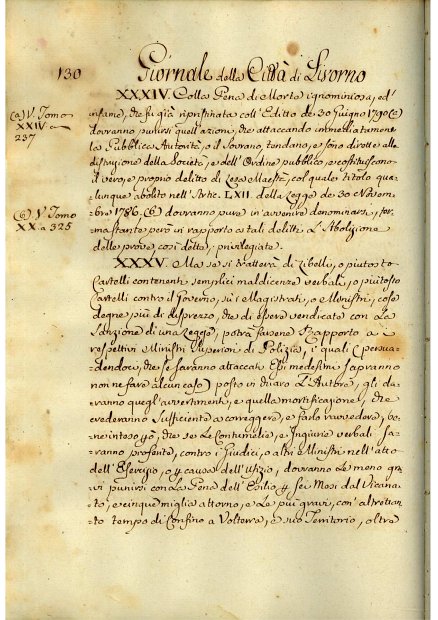 130
Giornale della Città di Livorno
XXXIV. Colla Pena di Morte ignominiosa, ed'
infame, che fu già ripristinata coll'Editto de 30 Giugno 1790 (a)
(a) V. Tomo
XXIV a
237
dovranno punirsi quell'azione, che attaccando immediatamen
la Pubblica Autorità, o il Sovrano, tendano, e sono dirette alla
distruzione della Società, e dell'Ordine pubblico, e costituiscono
il vero, e proprio delitto di Lesa Maestà, col quale titolo qua-
lunque abolito nell'Artic. LXII. della Legge de 30 Novem
bre 1786, (b) dovranno pure in avvenire denominarsi, fer-
(b) V. Tomo
XX. a 325
ma stante però in rapporto a tali delitti L'Abolizione
delle prove, così dette, privilegiate.
XXXV. Ma se si tratterà di Libelli, o piutosto
Cartelli contenenti semplici maldicenze verbali, o piuttosto
Cartelli contro il Governo, su i Magistrati, o Ministri, cose
degne più di disprezzo, che di essere vendicate con La
Sanzione di una Legge, potrà farsene Rapporto a i
respettivi Ministri Superiori di Polizia, i quali (persua-
dendoci, che se saranno attaccati Essi medesimi sapranno
non ne fare alcun caso) posto in chiaro L'Autore, gli da-
ranno quegl'avvertimenti, e quella mortificazione, che
crederanno Sufficiente a correggere, e farlo ravvedere, be-
ne inteso però, che se Le Contumelie, e Ingiurie verbali sa-
ranno proferite, contro i Giudici, o altri Ministri nell'atto
dell'Esercizio, o p causa dell'Ufizio, dovranno Le meno gra
vi punirsi con La Pena dell'Esilio p sei Mesi dal Vicaria-
to, e cinque miglia attorno, e Le più gravi, con'altrettan-
to tempo di Confino a Volterra, e suo Territorio, oltre